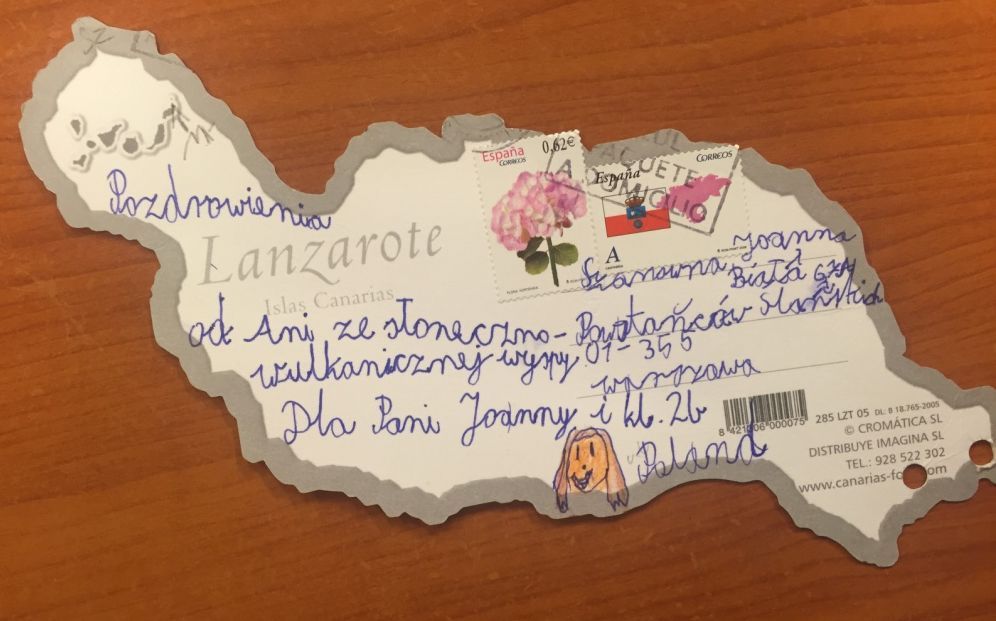 España
CORREOS
0,62€
España
CORREOS
A
PAQUETE
DOMICILIO
Pozdrowienia
Lanzarote
Islas Canarias
od Ani ze słoneczno-
wulkanicznej wyspy
Dla Pani Joanny i kl. 2b
Szanowna Joanna
Biała
Powstańców Śląskich
01-355
Warszawa
Poland
8 421006 000075
285 LZT 05 DL: B 18.765-2005
© CROMÁTICA SL
DISTRIBUYE IMAGINA SL
TEL.: 928 522 302
www.canarias-fo .com